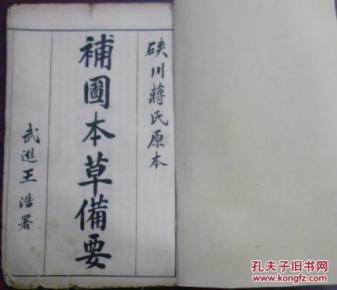 硤川蔣氏原本
補圖本草備要
武進王浩署
孔夫子旧书网